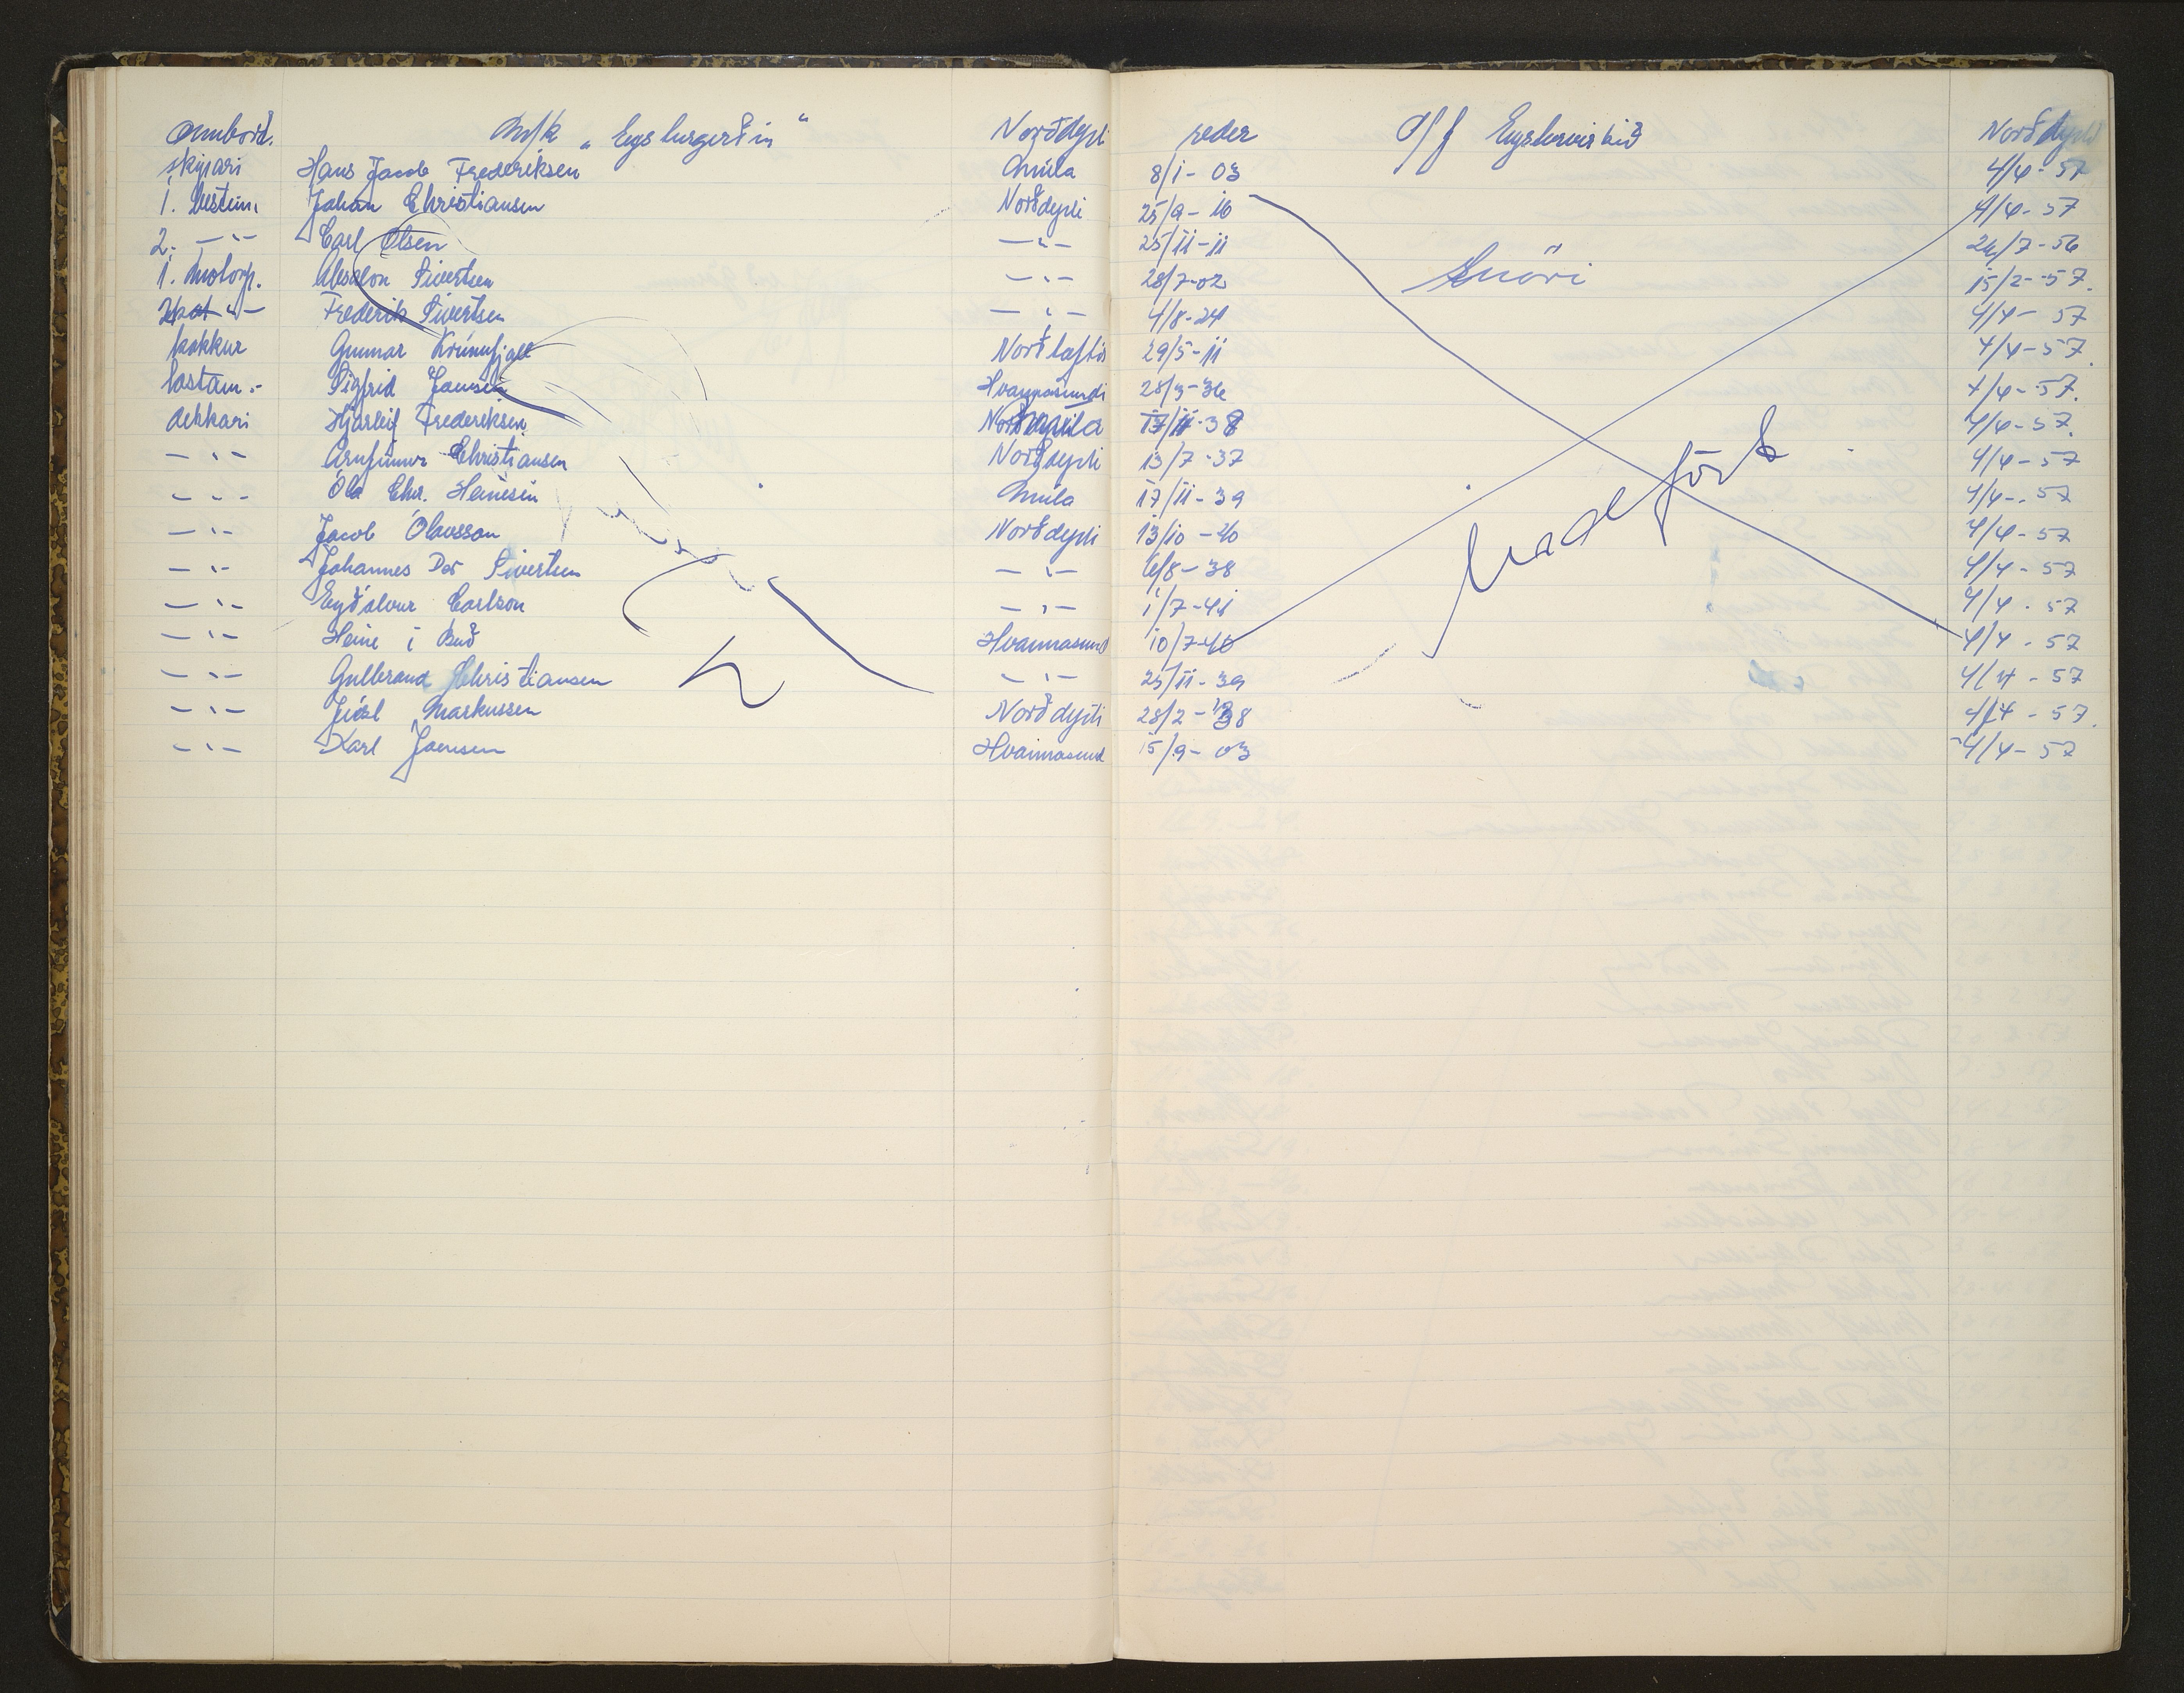 Ombord. M/k „Eysturgerðin“ Norðdepli reder P/f Eysturvirkið Norðdepli
skipari Hans Jacob Frederiksen Múla 8/1-03 4/4-57
1. bestim. Johan Christiansen Norðdepli 25/9-10 4/4-57
2. -"- Carl Olsen -"- 25/11-11 24/7-56
1. motorp. Absalon Sivertsen -"- 28/7-02 15/2-57.
-"- Frederik Sivertsen -"- 4/8-24 4/4-57
kokkur Gunnar Krúnufjall Norðtoftir 29/5-11 4/4-57.
lastam.- Sigfrid Joensen Hvannasundi 28/3-36 4/4-57.
dekkari Hjarleif Frederiksen Múla 17/11-38 4/4-57.
-"- Arnfinnur Christiansen Norðdepli 13/7-37 4/4-57
-"- Óla Chr. Heinesen Múla 17/11-39 4/4-57
-"- Jacob Ólavsson Norðdepli 13/10-40 4/4-57
-"- Johannes Dav Sivertsen -"- 6/8-38 4/4-57
-"- Eyðálvur Carlson -"- 1/7-41 4/4-57
-"- Heine í Búð Hvannasund 10/7-40 4/4-57
-"- Gullbrand Christiansen -"- 25/11-39 4/4-57
-"- Jóal Markussen Norðdepli 28/2-38 4/4-57.
-"- Karl Joensen Hvannasund 15/9-03 4/4-57